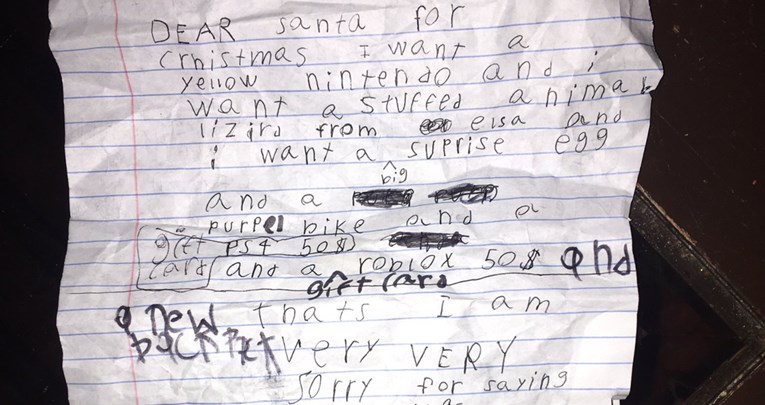 DEAR santa for
crhistmas I want a
yellow nintendo and i
want a stuffed animal
lizird from elsa and
i want a suprise egg
big
and a
purpel bike and a
gift PS4 50$
card and a roblox 50$ and
gift card
a new thats I am
very VERY
sorry for saying